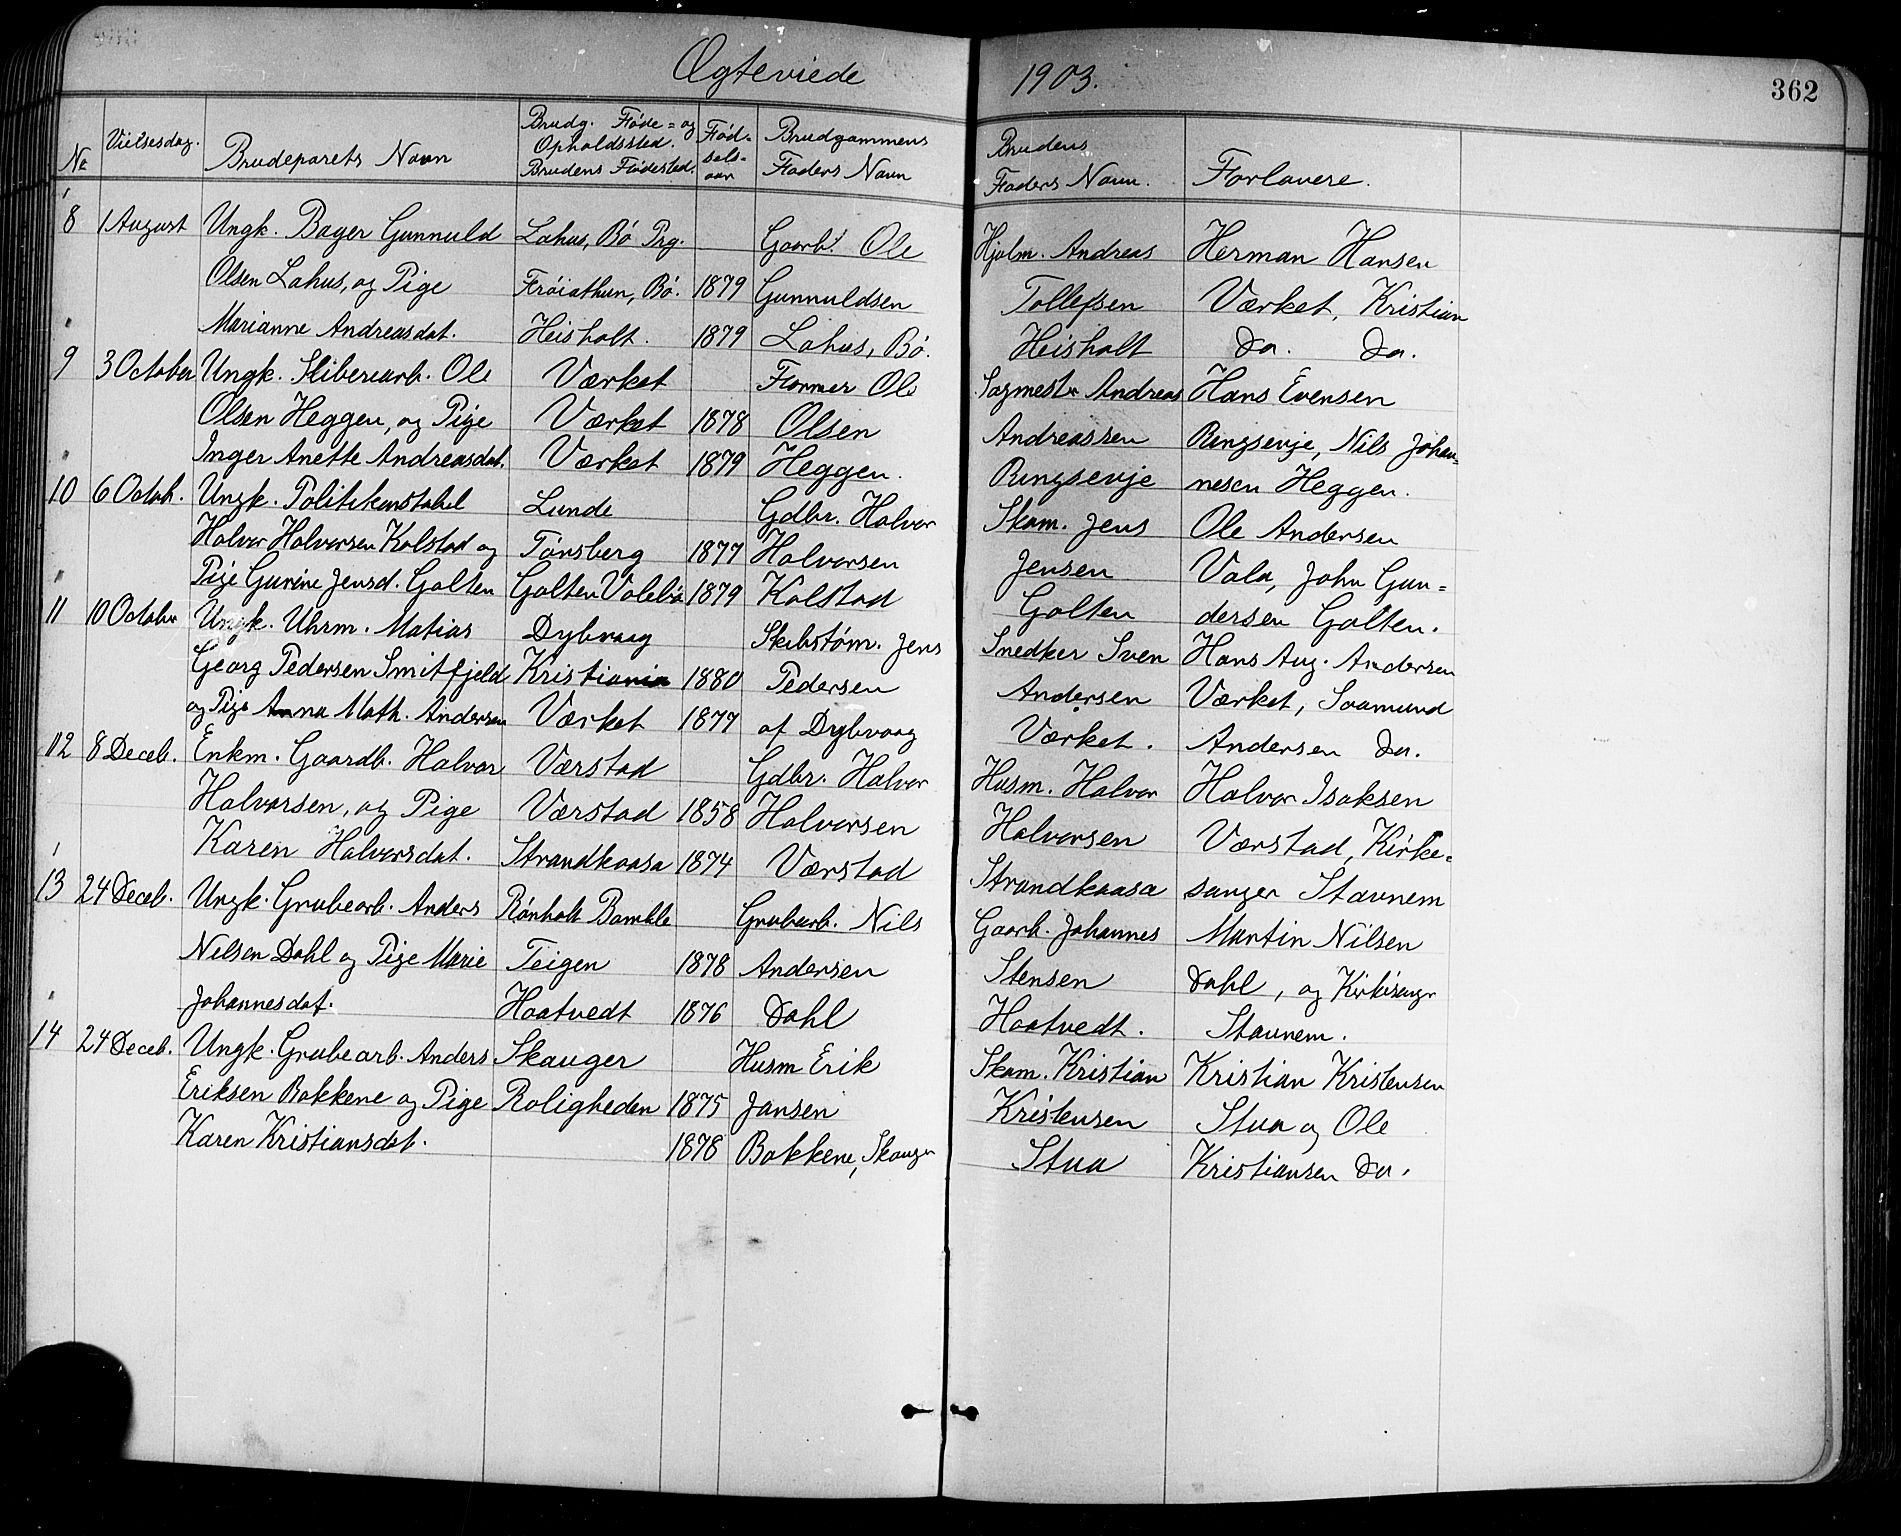 Ægteviede 1903. 362
No Vielsesdag. Brudeparets Navn Brudg. Føde= og Opholdssted. Brudens Fødested. Fødselsaar Brudgommens Faders Navn Brudens Faders Navn. Forlovere.
8 1 August Ungk. Bager Gunnuld Lahus, Bø Prg. Gaarb. Ole Hjolm. Andreas Herman Hansen
Olsen Lahus, og Pige Frøiathun, Bø. 1879 Gunnuldsen Tollefsen Værket, Kristian
Marianne Andreasdat. Heisholt. 1879 Lahus, Bø. Heisholt do. do.
9 3 October Ungk. Sliberiarb. Ole Værket Former Ole Sagmestr Andreas Hans Evensen
Olsen Heggen, og Pige Værket 1878 Olsen Andreassen Ringsevje, Nils Johan=
Inger Anette Andreasdat. Værket 1879 Heggen. Ringsevje nesen Heggen.
10 6 Octob. Ungk. Politikonstabel Lunde Gdbr. Halvor Skom. Jens Ole Andersen
Halvor Halvorsen Kolstad og Tønsberg 1877 Halvorsen Jensen Vala, John Gun=
Pige Gurine Jensd. Golten Golten Valebø 1879 Kolstad Golten dersen Golten.
11 10 October Ungk. Uhrm. Matias Dybvaag Skibstøm. Jens Snedker Sven Hans Aug. Andersen
Georg Pedersen Smitfjeld Kristiania 1880 Pedersen Andersen Værket, Saamund
og Pige Anna Math. Andersen Værket 1877 af Dybvaag Værket. Andersen do.
12 8 Deceb. Enkm. Gaardb. Halvor Værstad Gdbr. Halvor Husm. Halvor Halvor Isaksen
Halvorsen, og Pige Værstad 1858 Halvorsen Halvorsen Værstad, Kirke=
Karen Halvorsdat. Strandkaasa 1874 Værstad Strandkaasa sanger Stavnem
13 24 Deceb. Ungk. Grubearb. Anders Rønholt Bamble Grubarb. Nils Gaarb. Johannes Martin Nilsen
Nelsen Dahl og Pige Marie Teigen 1878 Andersen Stensen Dahl, og Kirkesangr
Johannesdat. Haatvedt 1876 Dahl Haatvedt. Stavnem.
14 24 Deceb. Ungk. Grubearb. Anders Skauger Husm Erik Skom. Kristian Kristian Kristensen
Eriksen Bakkene og Pige Roligheden 1875 Jansen Kristensen Stua og Ole
Karen Kristiansdat. 1878 Bakkene, Skaugr Stua Kristiansen do.